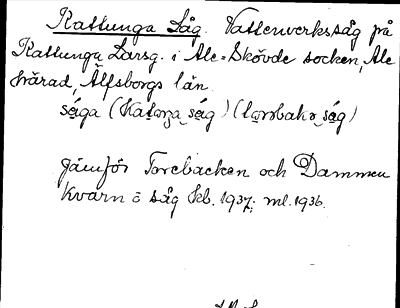 Kattunga Såg. Vattenverkssåg på
Kattunga Larsg. i Ale-Skövde socken, Ale
härad, Älfsborgs län.
såga (Katonga såg) (Torsbako såg)
Jämför Torebacken och Dammen
Kvarn o såg Kb. 1937; ml. 1936.